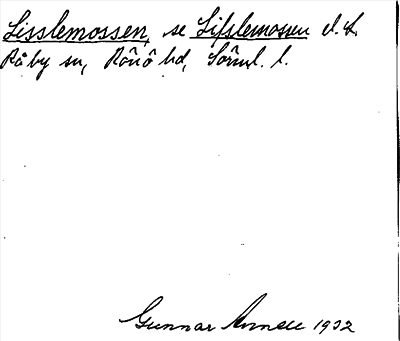 Lisslemossen, se Lifslemossen d. L.
Råby sn, Rönö hd, Sörml. l.
Gunnar Annell 1932